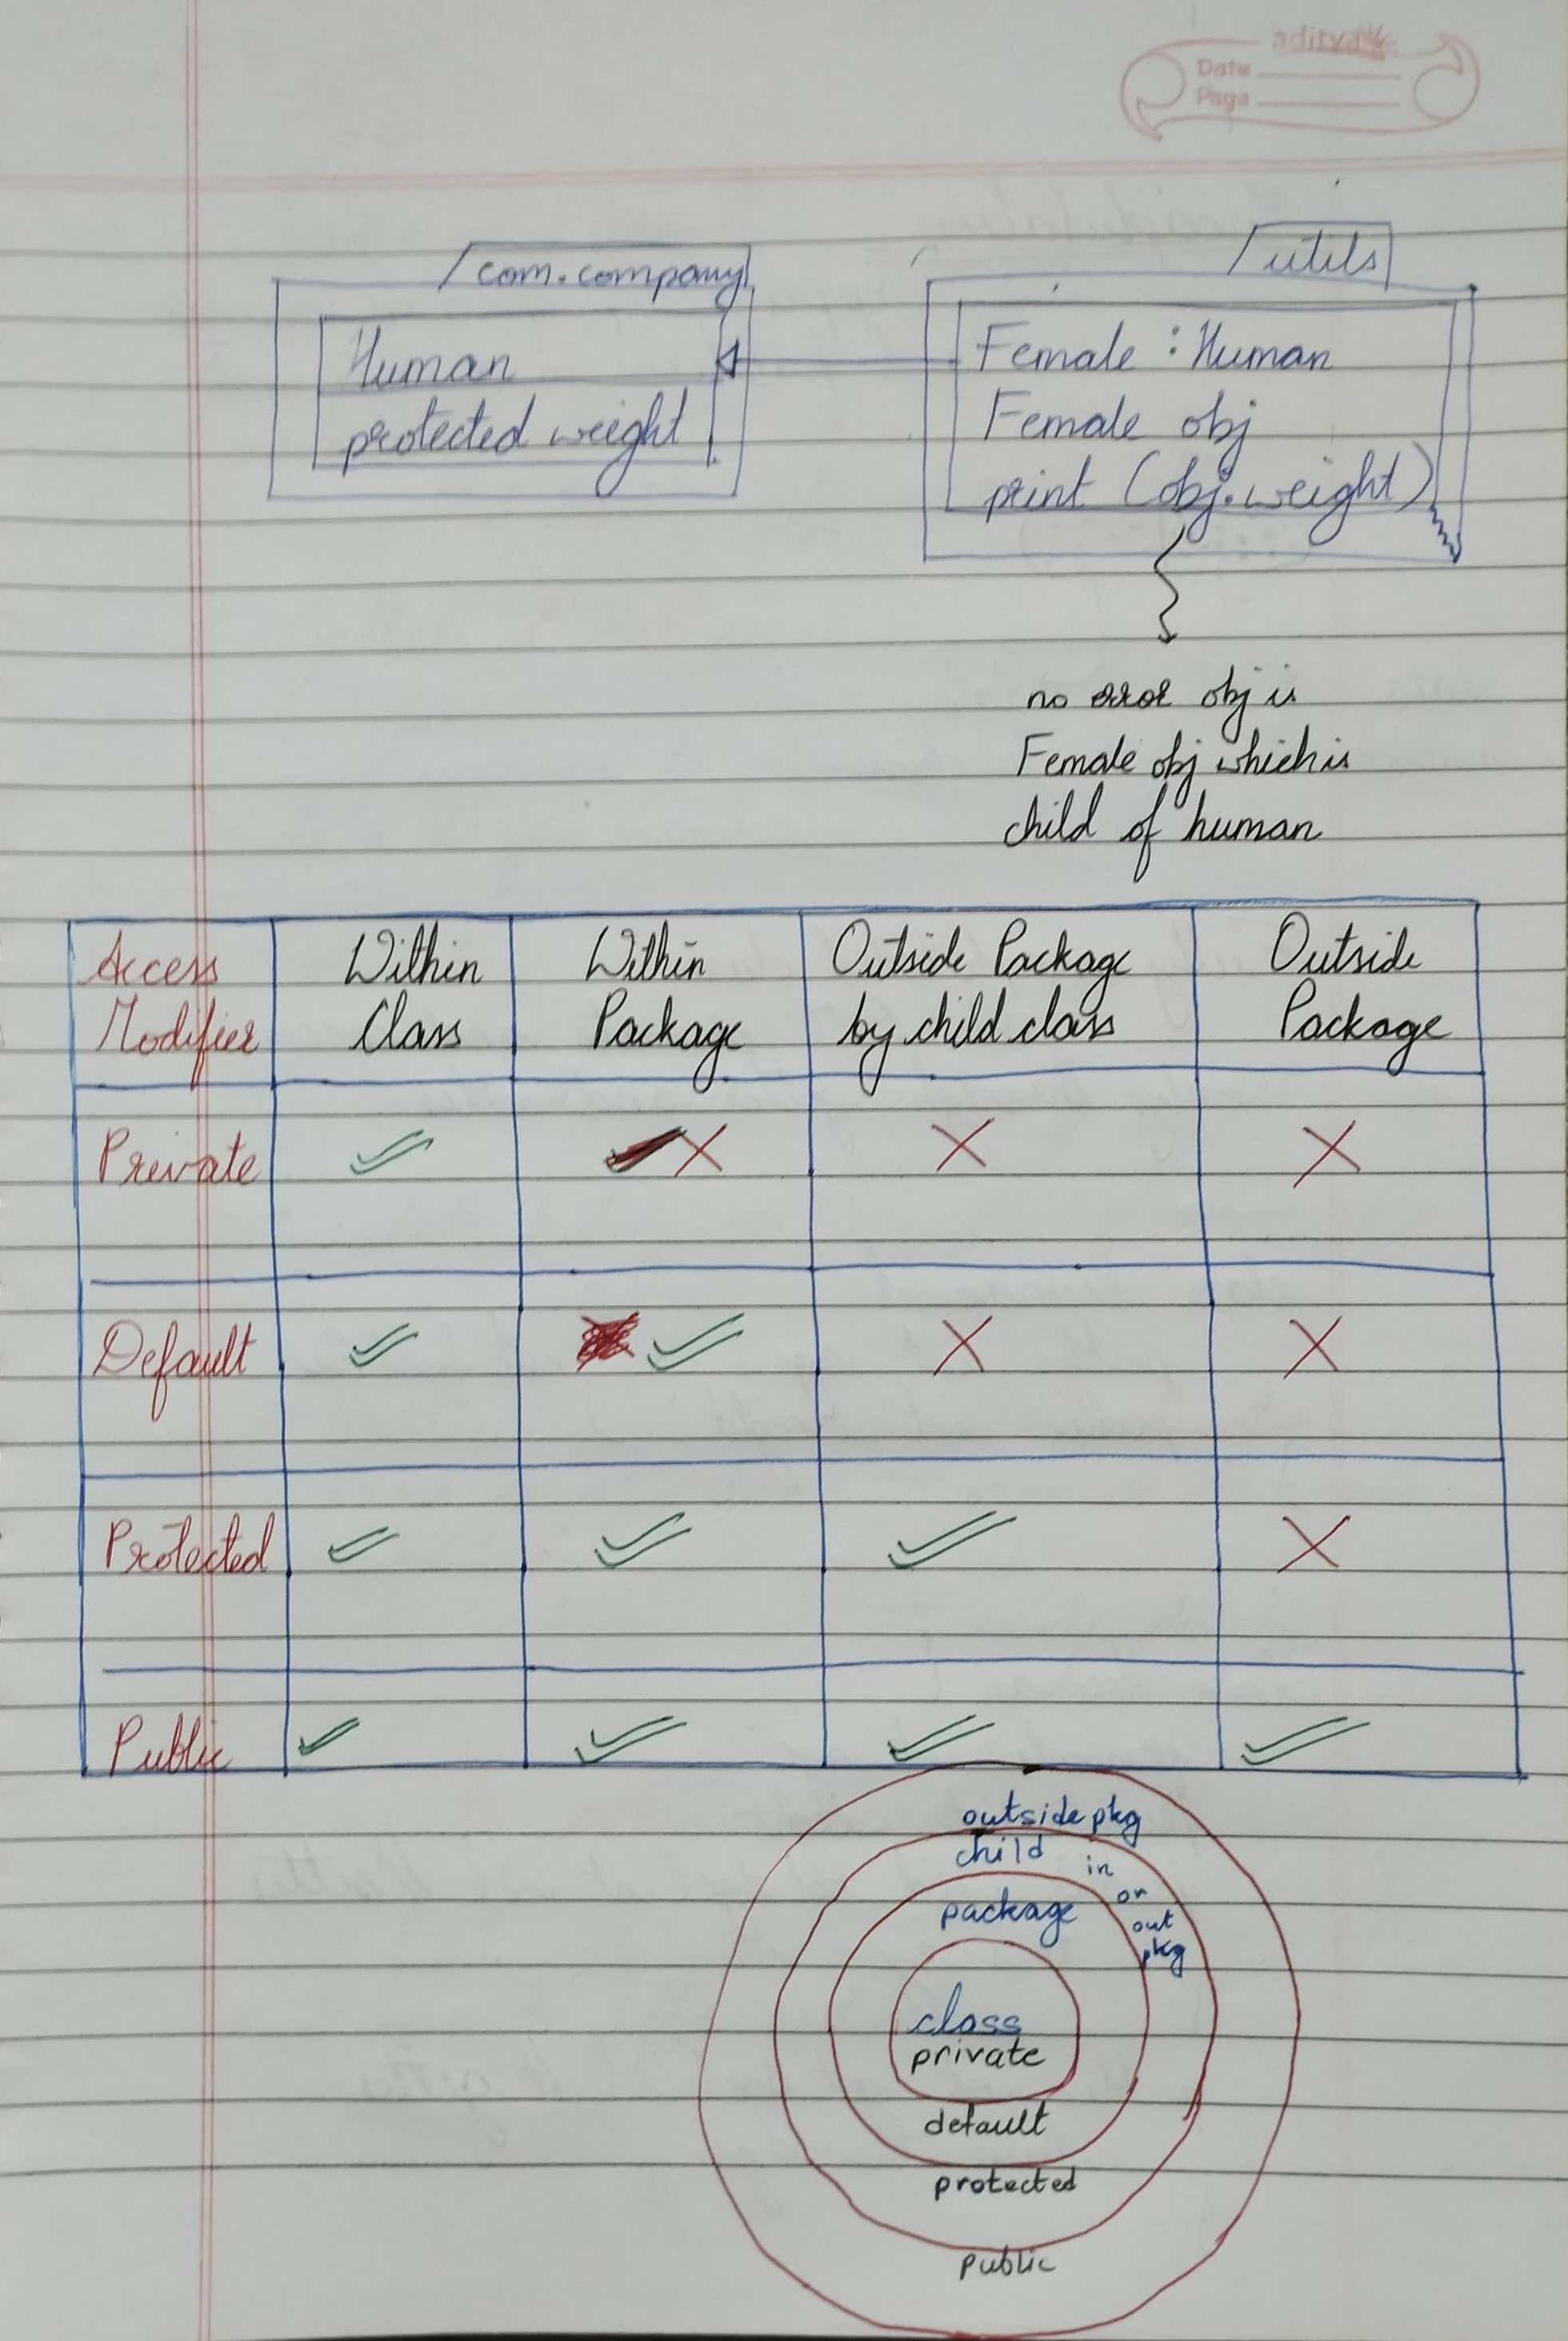 aditya
Date
Page
com.company
Human
protected weight
utils
Female : Human
Female obj
print (obj.weight)
no error obj is
Female obj which is
child of human
Access Modifier Within Class Within Package Outside Package by child class Outside Package
Private ✓ X X X
Default ✓ ✓ X X
Protected ✓ ✓ ✓ X
Public ✓ ✓ ✓ ✓
outside pkg
child in or out pkg
package
class
private
default
protected
public